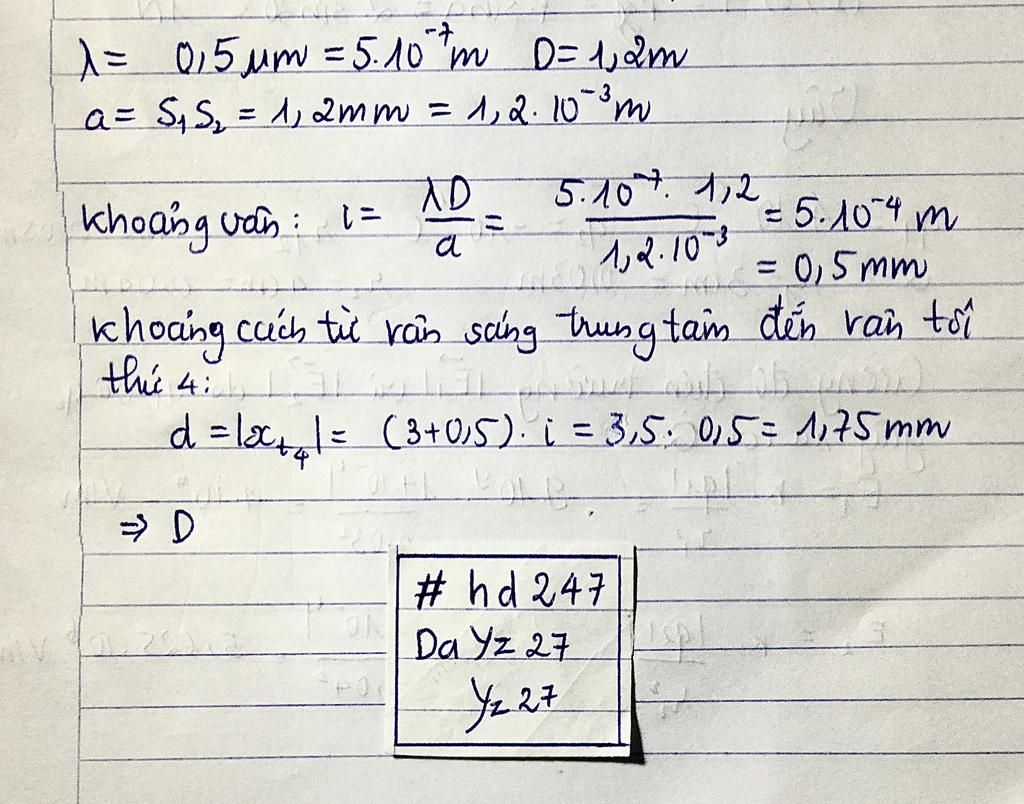 λ = 0,5 μm = 5.10⁻⁷ m D = 1,2m
a = S₁S₂ = 1,2mm = 1,2.10⁻³ m
khoảng vân: i = λD/a = 5.10⁻⁷. 1,2/1,2.10⁻³ = 5.10⁻⁴ m
= 0,5 mm
khoảng cách từ vân sáng trung tâm đến vân tối
thứ 4:
d = |xₜ₄| = (3+0,5). i = 3,5. 0,5 = 1,75 mm
⇒ D
# hd 247
Da Yz 27
Yz 27